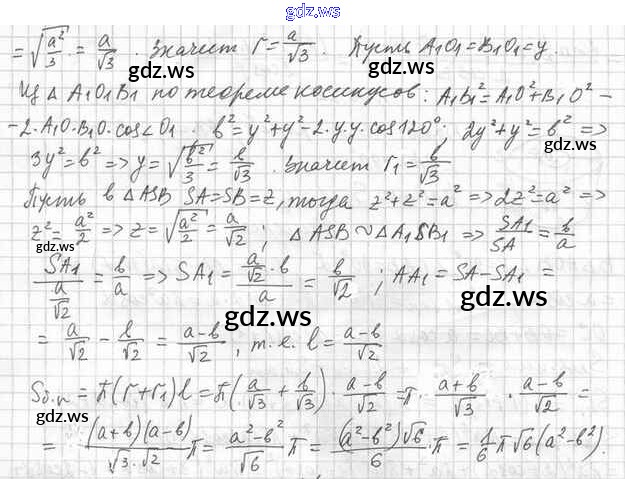 gdz.ws
= √(a²/3) = a/√3 . Значит r = a/√3 . Пусть A₁O₁ = B₁O₁ = y.
gdz.ws gdz.ws
Из △ A₁O₁B₁ по теореме косинусов: A₁B₁² = A₁O² + B₁O² –
– 2·A₁O·B₁O·cos∠O₁ . b² = y² + y² – 2·y·y·cos120°; 2y² + y² = b² =>
gdz.ws
3y² = b² => y = √(b²/3) = b/√3 . Значит r₁ = b/√3
Пусть в △ASB SA = SB = z, тогда z² + z² = a² => 2z² = a² =>
z² = a²/2 => z = √(a²/2) = a/√2 ; △ ASB ~ △A₁SB₁ => SA₁/SA = b/a
gdz.ws
SA₁/(a/√2) = b/a => SA₁ = (a/√2 · b)/a = b/√2 ; AA₁ = SA – SA₁ =
gdz.ws gdz.ws
= a/√2 – b/√2 = (a–b)/√2 , т.е. l = (a–b)/√2
Sб.п = π(r + r₁)l = π(a/√3 + b/√3) · (a–b)/√2 = π · (a+b)/√3 · (a–b)/√2 =
gdz.ws gdz.ws
= (a+b)(a–b)/(√3·√2) π = (a²–b²)/√6 π = (a²–b²)√6/6 · π = 1/6 π√6(a²–b²).
gdz.ws